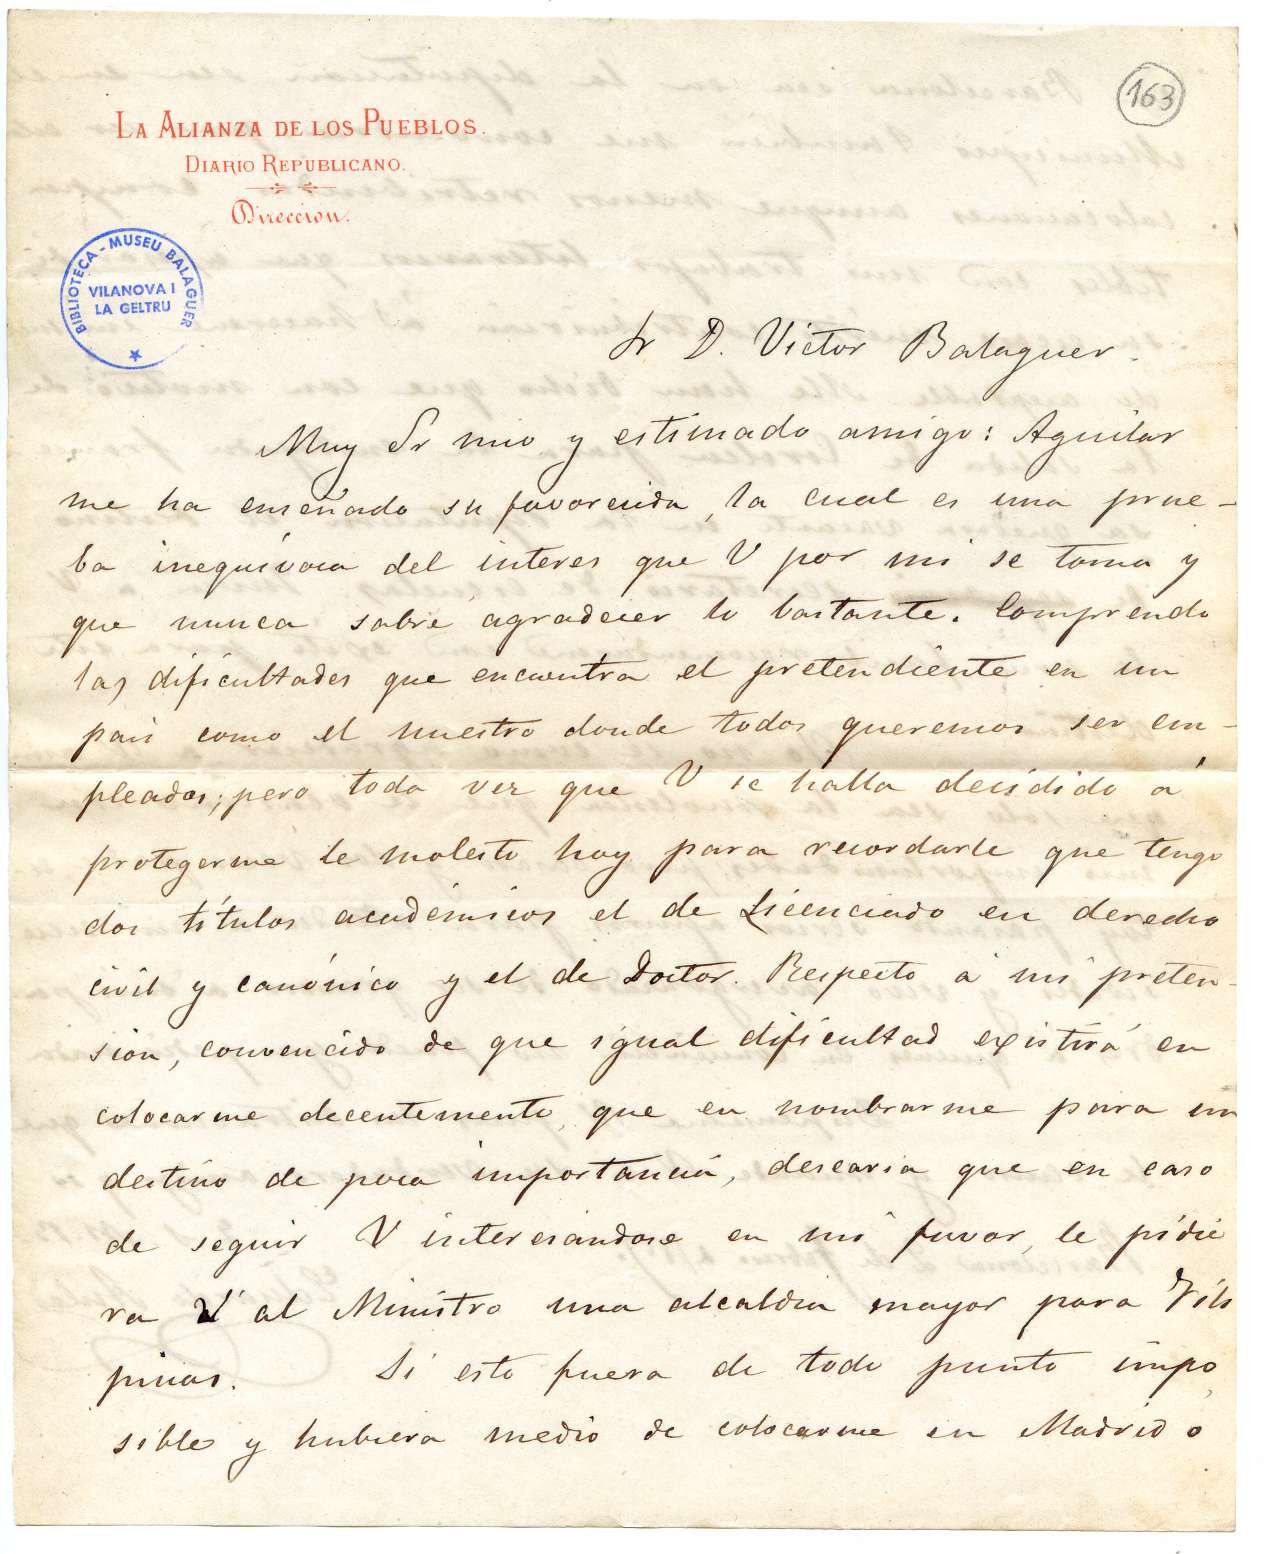 163
LA ALIANZA DE LOS PUEBLOS.
DIARIO REPUBLICANO.
Direccion.
BIBLIOTECA - MUSEU BALAGUER
VILANOVA I
LA GELTRU
Sr D. Victor Balaguer.
Muy Sr mio y estimado amigo: Aguilar
me ha enseñado su favorecida, la cual es una prue-
ba inequívoca del interes que V por mi se toma y
que nunca sabré agradecer lo bastante. Comprendo
las dificultades que encuentra el pretendiente en un
pais como el nuestro donde todos queremos ser em-
pleados; pero toda vez que V se halla decidido á
protegerme le molesto hoy para recordarle que tengo
dos títulos académicos el de Licenciado en derecho
civil y canónico y el de Doctor. Respecto á mi preten-
sion, convencido de que igual dificultad existirá en
colocarme decentemente, que en nombrarme para un
destino de poca importancia, desearia que en caso
de seguir V interesándose en mi favor, le pidie
ra V al Ministro una alcaldia mayor para Fili
pinas. Si esto fuera de todo punto impo
sible y hubiera medio de colocarme en Madrid o